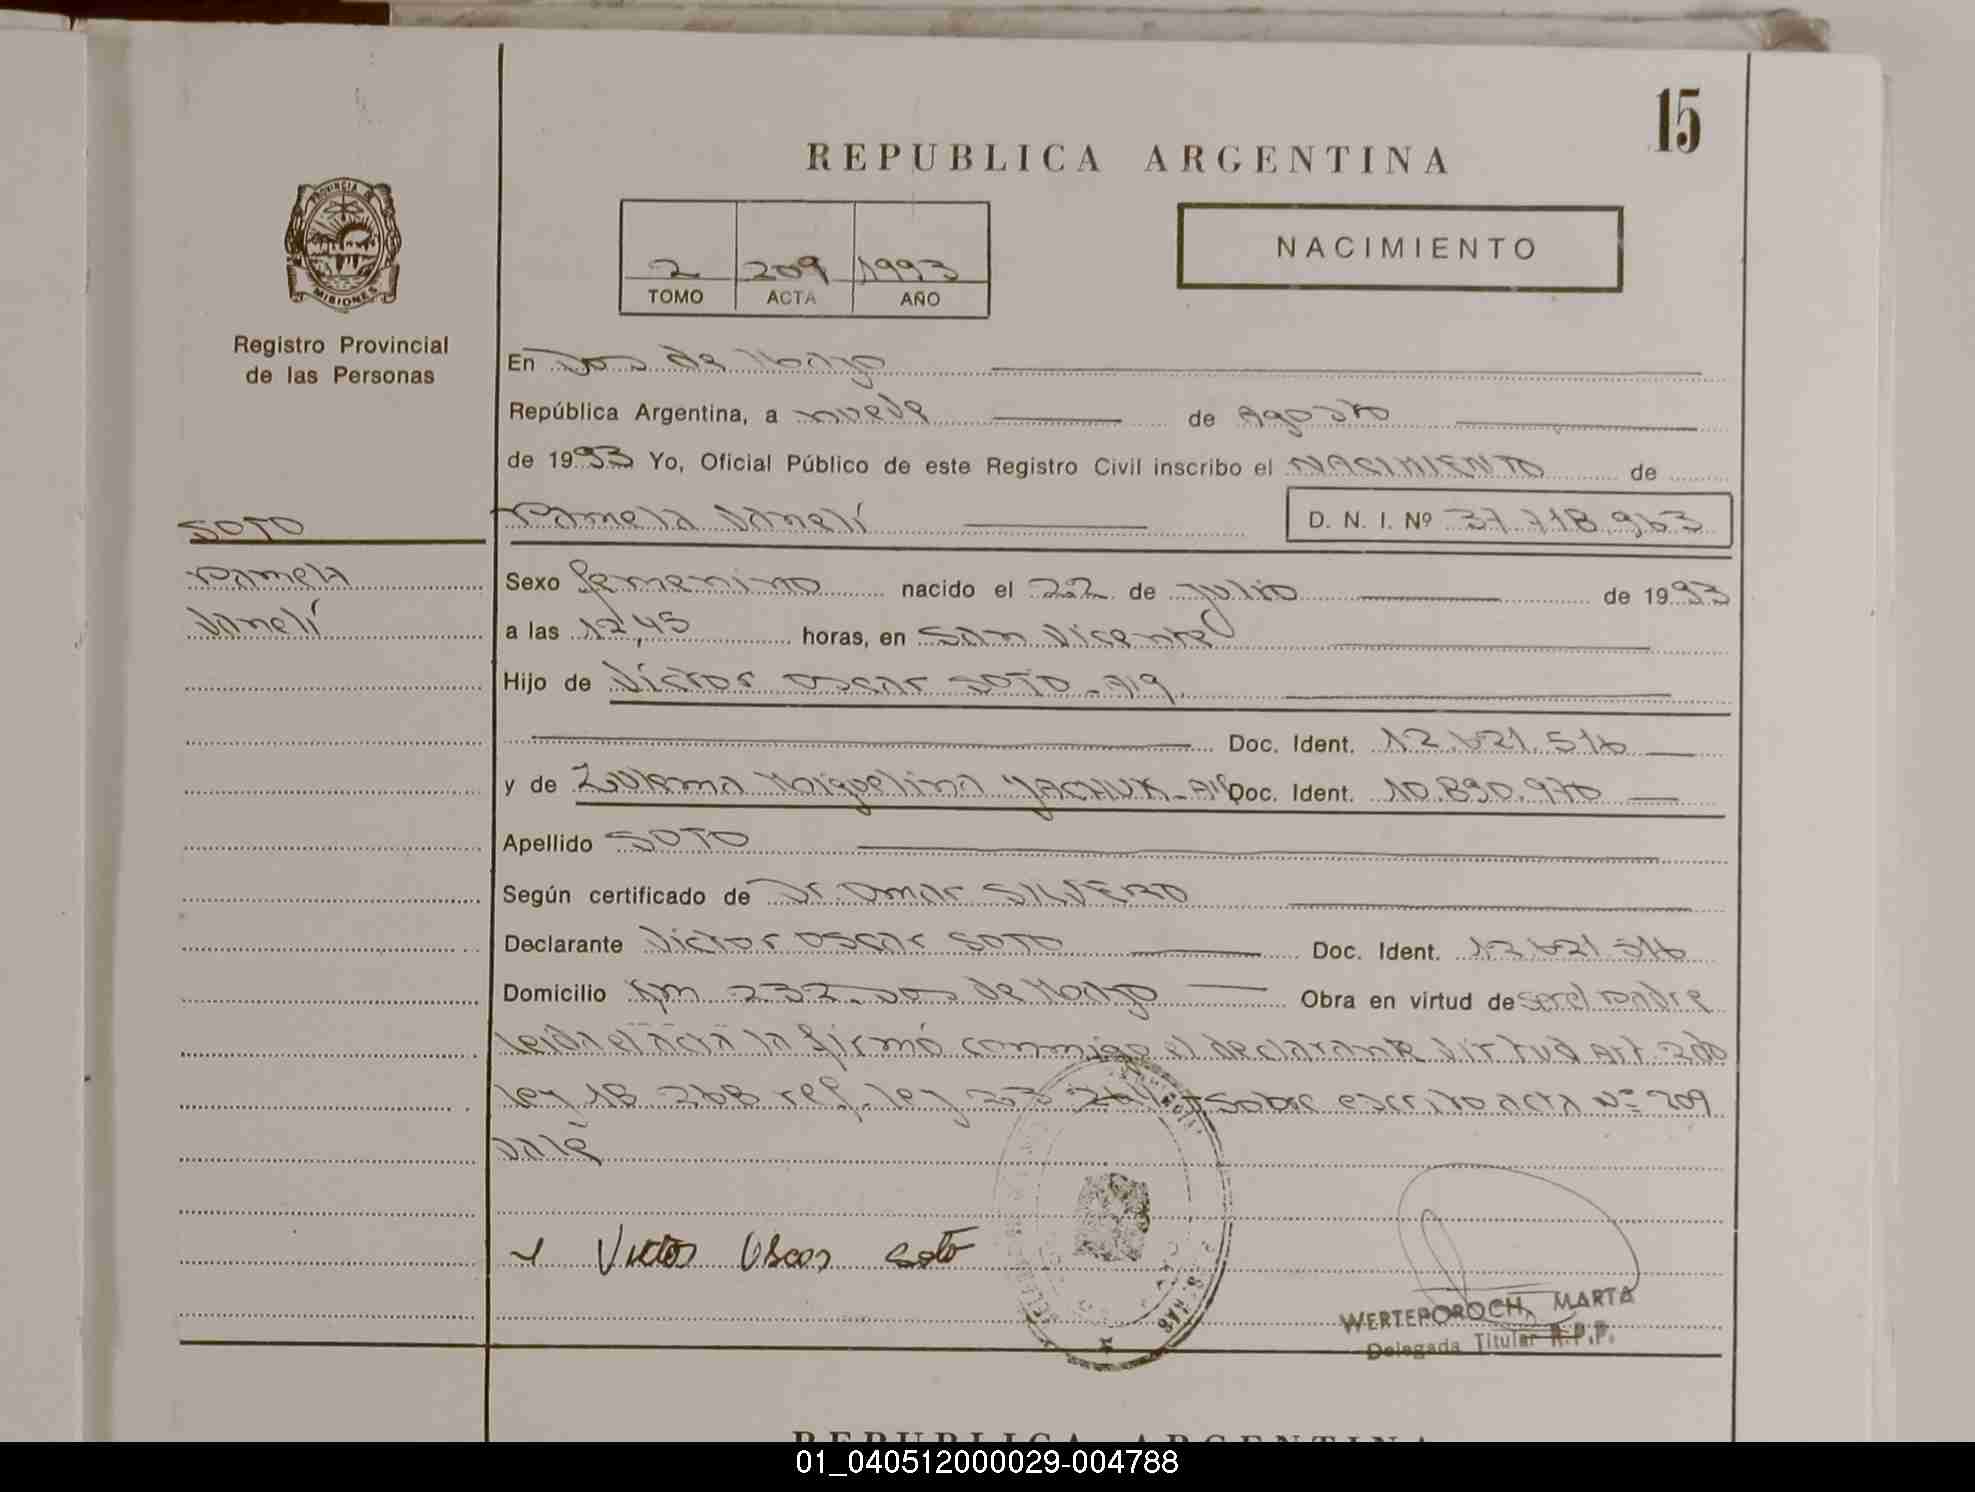 15
REPUBLICA ARGENTINA
PROVINCIA DE
MISIONES
2 209 1993
TOMO ACTA AÑO
NACIMIENTO
Registro Provincial
de las Personas
En Dos de Mayo
República Argentina, a nueve de Agosto
de 1993 Yo, Oficial Público de este Registro Civil inscribo el NACIMIENTO de
SOTO
Pamela Vanelí D. N. I. Nº 37.718.963
Pamela
Vanelí
Sexo femenino nacido el 22 de Julio de 1993
a las 12,45 horas, en San Vicente
Hijo de Victor Oscar SOTO - Arg.
Doc. Ident. 12.621.516
y de Zulema Miguelina YACHUK - Arg Doc. Ident. 10.890.970
Apellido SOTO
Según certificado de Dr. Omar SILVERO
Declarante Victor Oscar SOTO Doc. Ident. 12.621.516
Domicilio Km 232. Dos de Mayo Obra en virtud de ser el padre
leída el acta la firmó conmigo el declarante virtud Art. 2do
ley 18.268 ref. ley 23 Sobre escrito acta Nº 209
vale
Victor Oscar Soto
WERTEPOROCH, MARTA
Delegada Titular R.P.P.
REPUBLICA ARGENTINA
01_040512000029-004788